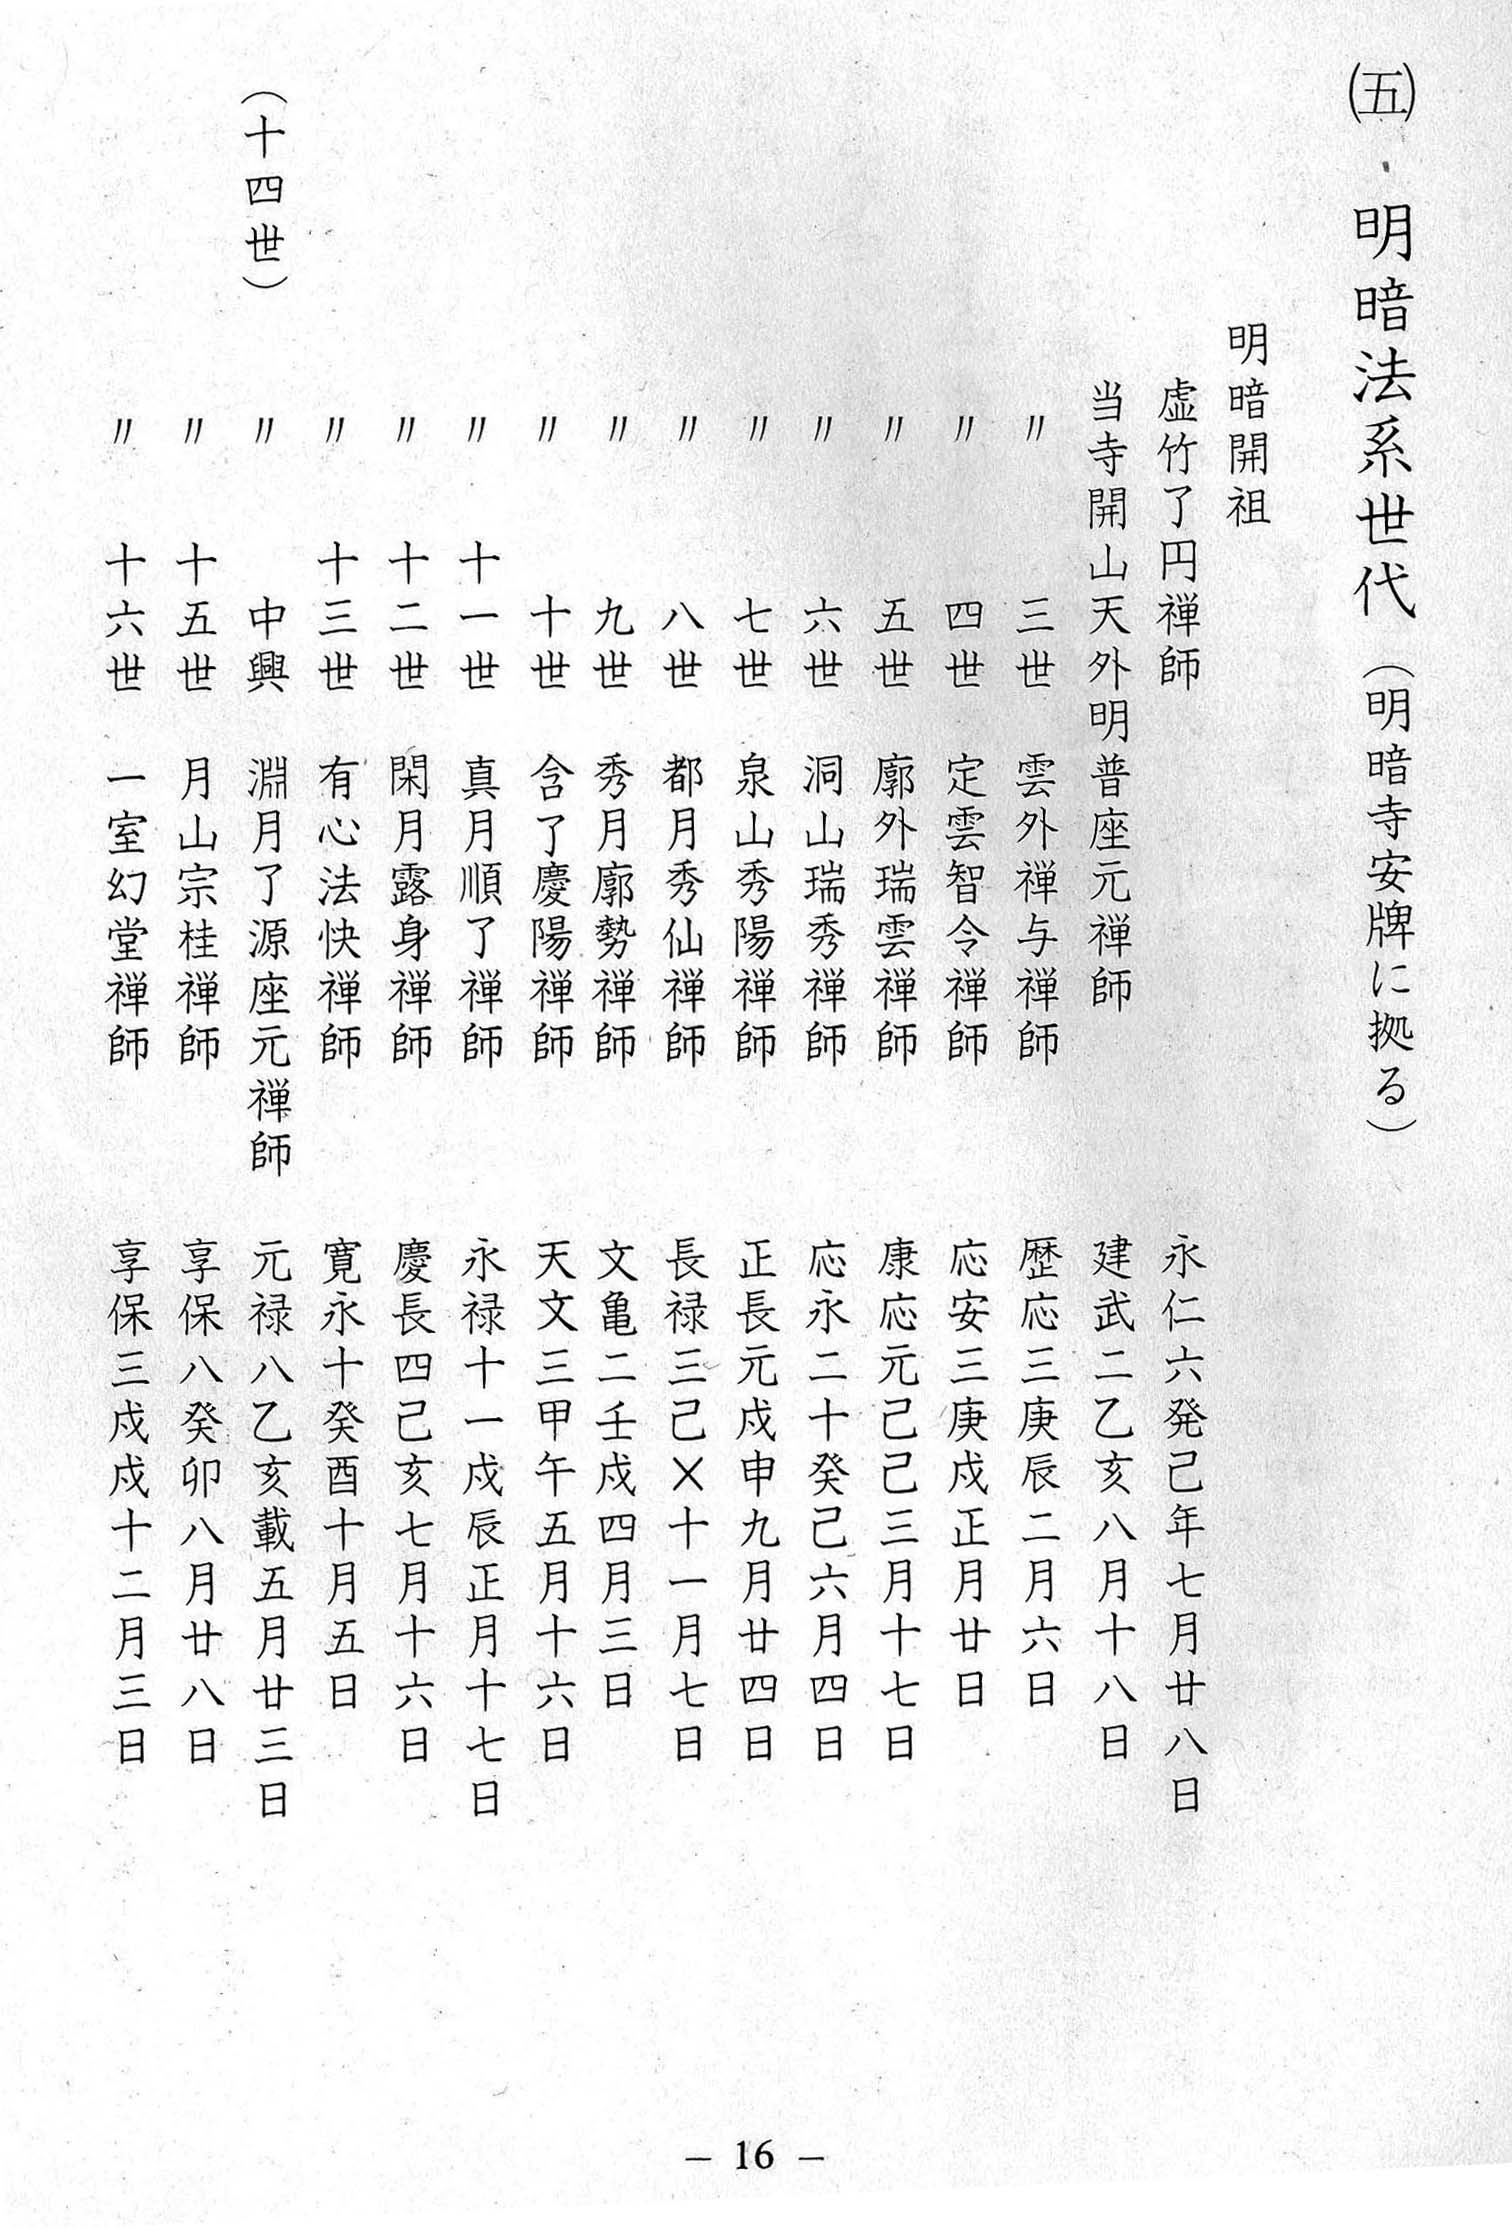 ㈤、明暗法系世代（明暗寺安牌に拠る）
明暗開祖
虚竹了円禅師　永仁六発己年七月廿八日
当寺開山天外明普座元禅師　建武二乙亥八月十八日
〃　三世　雲外禅与禅師　歴応三庚辰二月六日
〃　四世　定雲智令禅師　応安三庚戌正月廿日
〃　五世　廓外瑞雲禅師　康応元己己三月十七日
〃　六世　洞山瑞秀禅師　応永二十癸己六月四日
〃　七世　泉山秀陽禅師　正長元戍申九月廿四日
〃　八世　都月秀仙禅師　長禄三己×十一月七日
〃　九世　秀月廓勢禅師　文亀二壬戍四月三日
〃　十世　含了慶陽禅師　天文三甲午五月十六日
〃　十一世　真月順了禅師　永禄十一戍辰正月十七日
〃　十二世　閑月露身禅師　慶長四己亥七月十六日
〃　十三世　有心法快禅師　寛永十癸酉十月五日
（十四世）　〃　中興　淵月了源座元禅師　元禄八乙亥載五月廿三日
〃　十五世　月山宗桂禅師　享保八癸卯八月廿八日
〃　十六世　一室幻堂禅師　享保三戍戍十二月三日
– 16 –